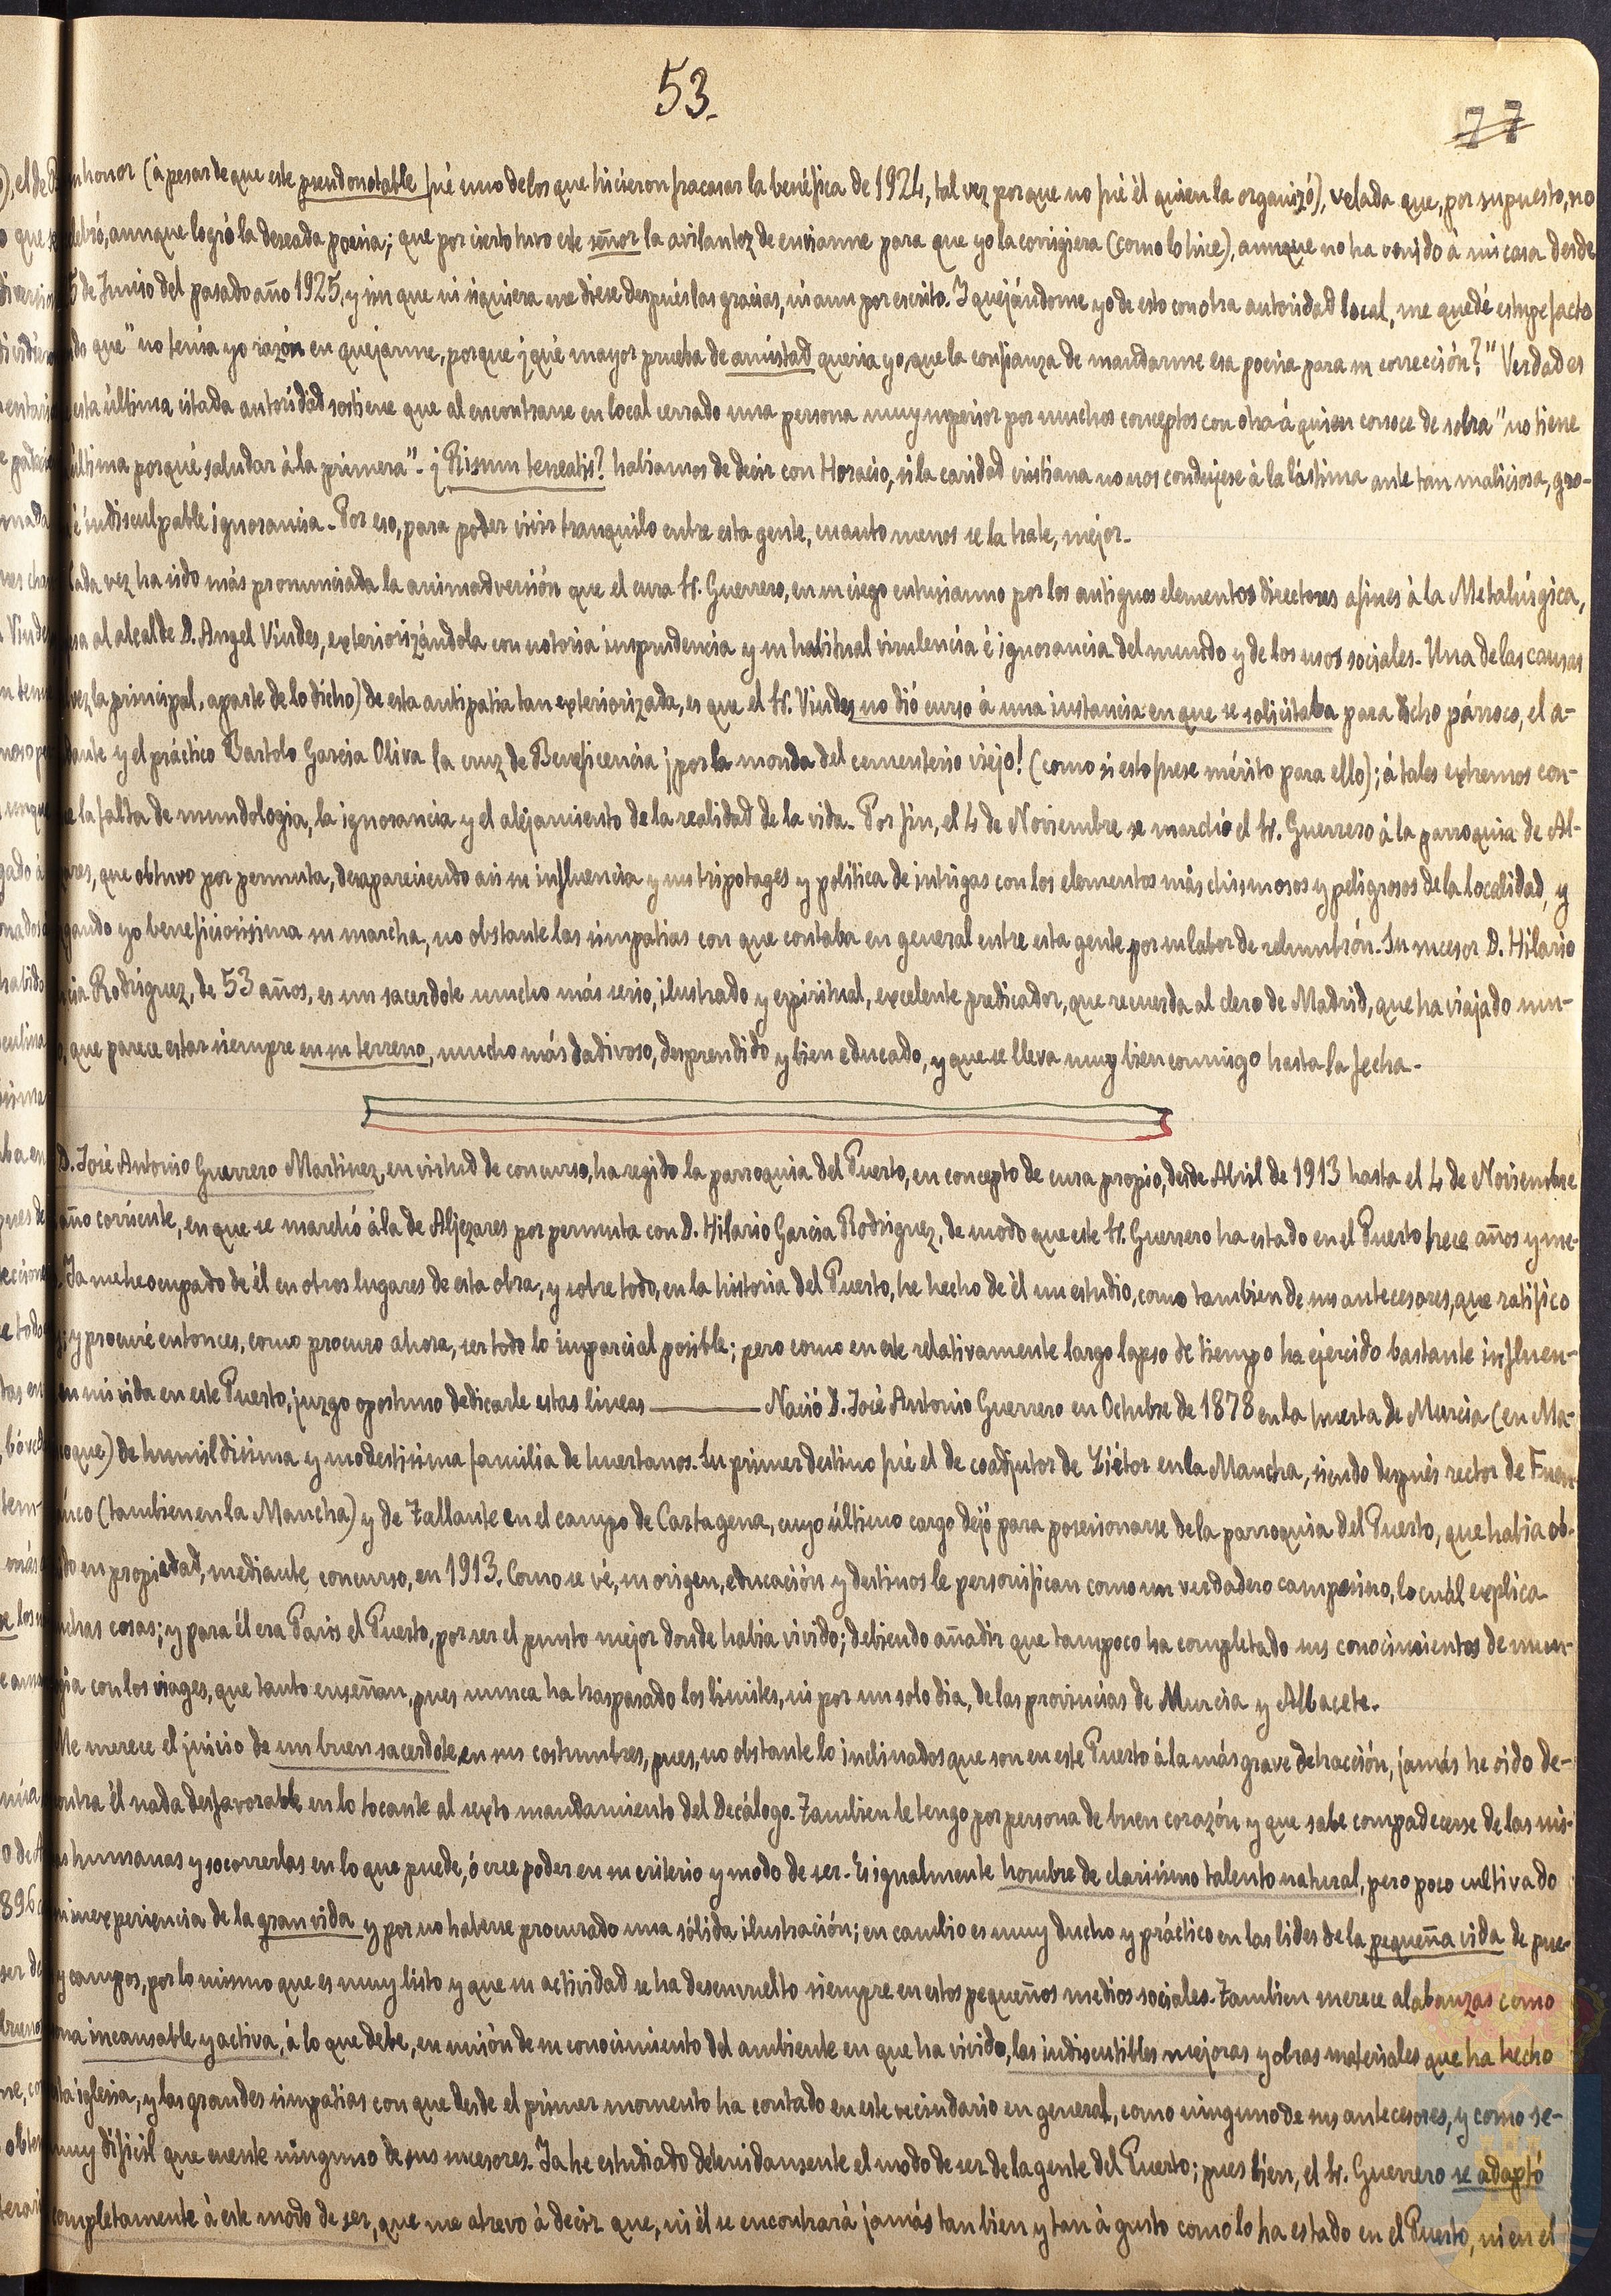 53.
77
nhonor (à pesar de que este pseudonotable fué uno de los que hicieron fracasar la benéfica de 1924, tal vez porque no fué él quien la organizó), velada que, por supuesto, no
lebró, aunque logró la deseada poesia; que por cierto tuvo este señor la avilantez de enviarme para que yo la corrigiera (como lo hice), aunque no ha venido à mi casa desde
5 de Junio del pasado año 1925, y sin que ni siquiera me diese después las gracias, ni aun por escrito. Y quejándome yo de esto con otra autoridad local, me quedé estupefacto
do que "no tenia yo razón en quejarme, porque ¿qué mayor prueba de amistad queria yo, que la confianza de mandarme esa poesia para su corrección?" Verdad es
esta última citada autoridad sostiene que al encontrarse en local cerrado una persona muy superior por muchos conceptos con otra á quien conoce de sobra "no tiene
última porqué saludar à la primera". ¿Risum teneatis? habiamos de decir con Horacio, si la caridad cristiana no nos condujese à la lástima ante tan maliciosa, gro-
é indisculpable ignorancia. Por eso, para poder vivir tranquilo entre esta gente, cuanto menos se la trate, mejor.
Cada vez ha sido más pronunciada la animadversión que el cura Sr. Guerrero, en su ciego entusiasmo por los antiguos elementos directores afines à la Metalúrgica,
sa al alcalde D. Angel Viudes, exteriorizándola con notoria imprudencia y su habitual virulencia é ignorancia del mundo y de los usos sociales. Una de las causas
vez la principal, aparte de lo dicho) de esta antipatia tan exteriorizada, es que el Sr. Viudes no dió curso à una instancia en que se solicitaba para dicho párroco, el a-
dante y el práctico Bartolo Garcia Oliva la cruz de Beneficencia ¡por la monda del cementerio viejo! (como si esto fuese mérito para ello); à tales extremos con-
e la falta de mundologia, la ignorancia y el alejamiento de la realidad de la vida. Por fin, el 4 de Noviembre se marchó el Sr. Guerrero à la parroquia de Al-
ares, que obtuvo por permuta, desapareciendo asi su influencia y sus tripotages y politica de intrigas con los elementos más chismosos y peligrosos de la localidad, y
gando yo beneficiosisima su marcha, no obstante las simpatias con que contaba en general entre esta gente por su labor de relumbrón. Su sucesor D. Hilario
cia Rodriguez, de 53 años, es un sacerdote mucho más serio, ilustrado y espiritual, excelente predicador, que recuerda al clero de Madrid, que ha viajado mu-
o, que parece estar siempre en su terreno, mucho más dadivoso, desprendido y bien educado, y que se lleva muy bien conmigo hasta la fecha.
D. José Antonio Guerrero Martinez, en virtud de concurso, ha regido la parroquia del Puerto, en concepto de cura propio, desde Abril de 1913 hasta el 4 de Noviembre
año corriente, en que se marchó à la de Aljezares por permuta con D. Hilario Garcia Rodriguez, de modo que este Sr. Guerrero ha estado en el Puerto trece años y me-
Ya me he ocupado de él en otros lugares de esta obra, y sobre todo, en la historia del Puerto, he hecho de él un estudio, como tambien de sus antecesores, que ratifico
y procuré entonces, como procuro ahora, ser todo lo imparcial posible; pero como en este relativamente largo lapso de tiempo ha ejercido bastante influen-
en mi vida en este Puerto, juzgo oportuno dedicarle estas lineas ——— Nació D. José Antonio Guerrero en Octubre de 1878 en la huerta de Murcia (en Ma-
oque) de humildisima y modestisima familia de huertanos. Su primer destino fué el de coadjutor de Liétor en la Mancha, siendo después rector de Fuen-
nco (tambien en la Mancha) y de Tallante en el campo de Cartagena, cuyo último cargo dejó para posesionarse de la parroquia del Puerto, que habia ob-
do en propiedad, mediante concurso, en 1913. Como se vé, su origen, educación y destinos le personifican como un verdadero campesino, lo cuál explica
chas cosas; y para él era Paris el Puerto, por ser el punto mejor donde habia vivido; debiendo añadir que tampoco ha completado sus conocimientos de mun-
gia con los viages, que tanto enseñan, pues nunca ha traspasado los limites, ni por un solo dia, de las provincias de Murcia y Albacete.
Me merece el juicio de un buen sacerdote en sus costumbres, pues, no obstante lo inclinados que son en este Puerto à la más grave detracción, jamás he oido de-
ontra él nada desfavorable en lo tocante al sexto mandamiento del Decálogo. Tambien le tengo por persona de buen corazón y que sabe compadecerse de las mis-
as humanas y socorrerlas en lo que puede, ó cree poder en su criterio y modo de ser. Es igualmente hombre de clarisimo talento natural, pero poco cultivado
inexperiencia de la gran vida y por no haberse procurado una sólida ilustración; en cambio es muy ducho y práctico en las lides de la pequeña vida de pue-
y campos, por lo mismo que es muy listo y que su actividad se ha desenvuelto siempre en estos pequeños medios sociales. Tambien merece alabanzas como
ona incansable y activa, á lo que debe, en unión de su conocimiento del ambiente en que ha vivido, las indiscutibles mejoras y obras materiales que ha hecho
sta iglesia, y las grandes simpatias con que desde el primer momento ha contado en este vecindario en general, como ninguno de sus antecesores, y como se-
muy dificil que cuente ninguno de sus sucesores. Ya he estudiado detenidamente el modo de ser de la gente del Puerto; pues bien, el Sr. Guerrero se adaptó
completamente à este modo de ser, que me atrevo à decir que, ni él se encontrará jamás tan bien y tan à gusto como lo ha estado en el Puerto, ni en el